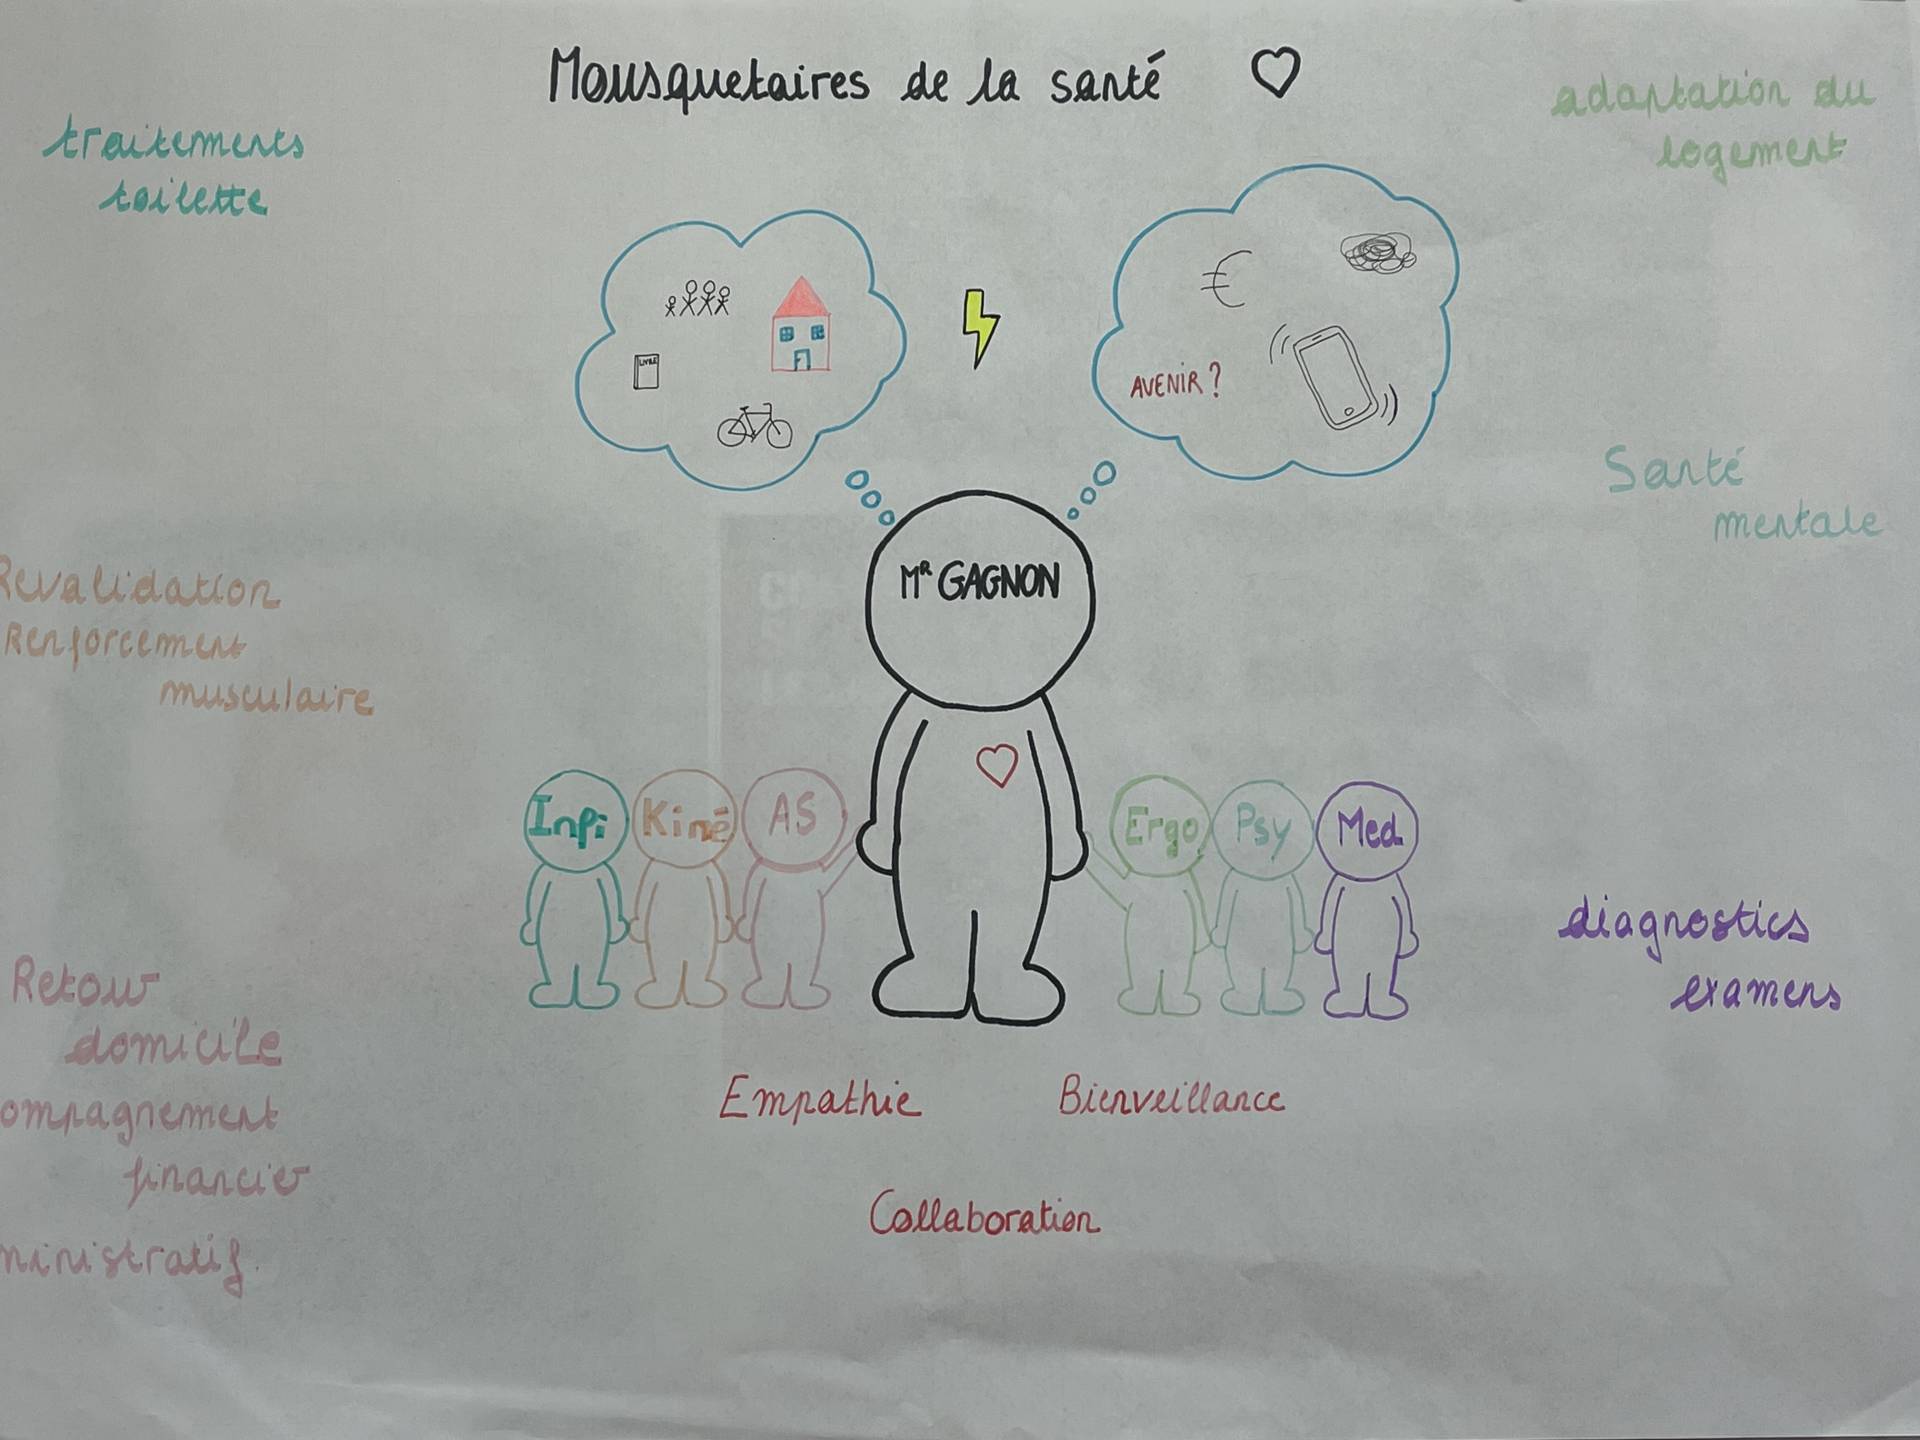 Mousquetaires de la santé
traitements
toilette
adaptation du
logement
LIVRE
€
AVENIR ?
Santé
mentale
Revalidation
Renforcement
musculaire
MR GAGNON
Infi
Kiné
AS
Ergo
Psy
Med
diagnostics
examens
Retour
domicile
ompagnement
financier
ministratif.
Empathie
Bienveillance
Collaboration